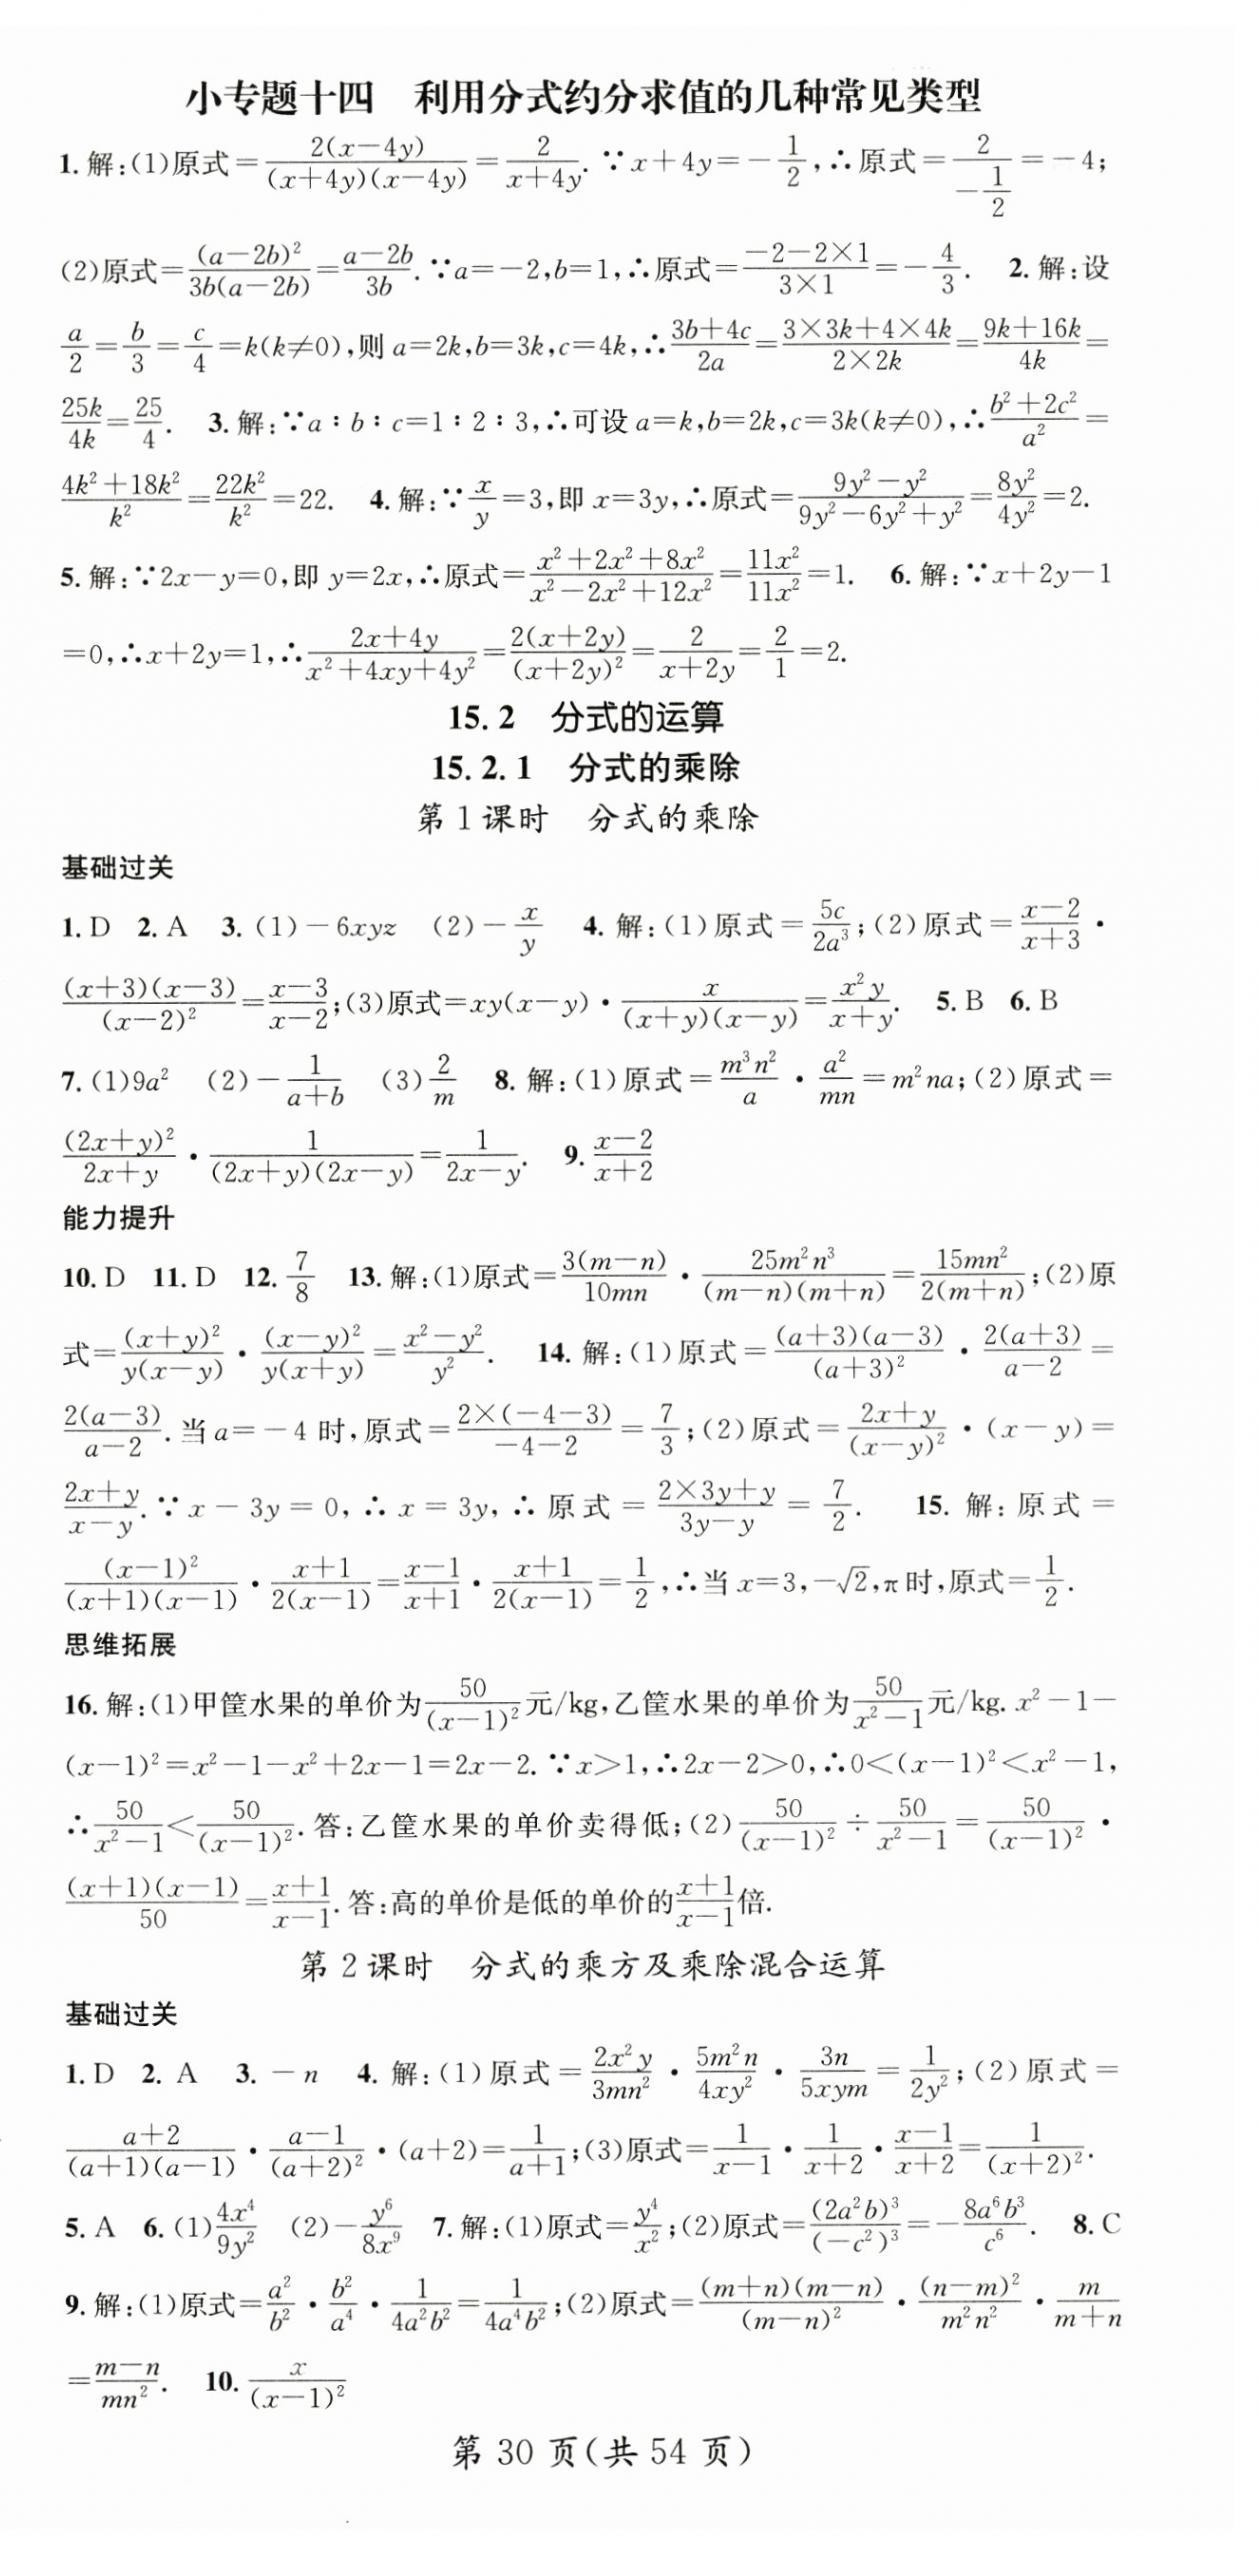 小专题十四　利用分式约分求值的几种常见类型
1. 解:(1)原式=\frac{2(x-4y)}{(x+4y)(x-4y)}=\frac{2}{x+4y}. ∵x+4y=-\frac{1}{2},∴原式=\frac{2}{-\frac{1}{2}}=-4;
(2)原式=\frac{(a-2b)^2}{3b(a-2b)}=\frac{a-2b}{3b}. ∵a=-2,b=1,∴原式=\frac{-2-2×1}{3×1}=-\frac{4}{3}.　2. 解:设
\frac{a}{2}=\frac{b}{3}=\frac{c}{4}=k(k≠0),则 a=2k,b=3k,c=4k,∴\frac{3b+4c}{2a}=\frac{3×3k+4×4k}{2×2k}=\frac{9k+16k}{4k}=
\frac{25k}{4k}=\frac{25}{4}.　3. 解:∵a∶b∶c=1∶2∶3,∴可设 a=k,b=2k,c=3k(k≠0),∴\frac{b^2+2c^2}{a^2}=
\frac{4k^2+18k^2}{k^2}=\frac{22k^2}{k^2}=22.　4. 解:∵\frac{x}{y}=3,即 x=3y,∴原式=\frac{9y^2-y^2}{9y^2-6y^2+y^2}=\frac{8y^2}{4y^2}=2.
5. 解:∵2x-y=0,即 y=2x,∴原式=\frac{x^2+2x^2+8x^2}{x^2-2x^2+12x^2}=\frac{11x^2}{11x^2}=1.　6. 解:∵x+2y-1
=0,∴x+2y=1,∴\frac{2x+4y}{x^2+4xy+4y^2}=\frac{2(x+2y)}{(x+2y)^2}=\frac{2}{x+2y}=\frac{2}{1}=2.
15.2　分式的运算
15.2.1　分式的乘除
第1课时　分式的乘除
基础过关
1. D　2. A　3. (1)-6xyz　(2)-\frac{x}{y}　4. 解:(1)原式=\frac{5c}{2a^3};(2)原式=\frac{x-2}{x+3}·
\frac{(x+3)(x-3)}{(x-2)^2}=\frac{x-3}{x-2};(3)原式=xy(x-y)·\frac{x}{(x+y)(x-y)}=\frac{x^2y}{x+y}.　5. B　6. B
7. (1)9a^2　(2)-\frac{1}{a+b}　(3)\frac{2}{m}　8. 解:(1)原式=\frac{m^3n^2}{a}·\frac{a^2}{mn}=m^2na;(2)原式=
\frac{(2x+y)^2}{2x+y}·\frac{1}{(2x+y)(2x-y)}=\frac{1}{2x-y}.　9. \frac{x-2}{x+2}
能力提升
10. D　11. D　12. \frac{7}{8}　13. 解:(1)原式=\frac{3(m-n)}{10mn}·\frac{25m^2n^3}{(m-n)(m+n)}=\frac{15mn^2}{2(m+n)};(2)原
式=\frac{(x+y)^2}{y(x-y)}·\frac{(x-y)^2}{y(x+y)}=\frac{x^2-y^2}{y^2}.　14. 解:(1)原式=\frac{(a+3)(a-3)}{(a+3)^2}·\frac{2(a+3)}{a-2}=
\frac{2(a-3)}{a-2}. 当 a=-4 时,原式=\frac{2×(-4-3)}{-4-2}=\frac{7}{3};(2)原式=\frac{2x+y}{(x-y)^2}·(x-y)=
\frac{2x+y}{x-y}. ∵x-3y=0,∴x=3y,∴原式=\frac{2×3y+y}{3y-y}=\frac{7}{2}.　15. 解:原式=
\frac{(x-1)^2}{(x+1)(x-1)}·\frac{x+1}{2(x-1)}=\frac{x-1}{x+1}·\frac{x+1}{2(x-1)}=\frac{1}{2},∴当 x=3,-√2,π时,原式=\frac{1}{2}.
思维拓展
16. 解:(1)甲筐水果的单价为\frac{50}{(x-1)^2}元/kg,乙筐水果的单价为\frac{50}{x^2-1}元/kg. x^2-1-
(x-1)^2=x^2-1-x^2+2x-1=2x-2. ∵x>1,∴2x-2>0,∴0<(x-1)^2<x^2-1,
∴\frac{50}{x^2-1}<\frac{50}{(x-1)^2}. 答:乙筐水果的单价卖得低;(2)\frac{50}{(x-1)^2}÷\frac{50}{x^2-1}=\frac{50}{(x-1)^2}·
\frac{(x+1)(x-1)}{50}=\frac{x+1}{x-1}. 答:高的单价是低的单价的\frac{x+1}{x-1}倍.
第2课时　分式的乘方及乘除混合运算
基础过关
1. D　2. A　3. -n　4. 解:(1)原式=\frac{2x^2y}{3mn^2}·\frac{5m^2n}{4xy^2}·\frac{3n}{5xym}=\frac{1}{2y^2};(2)原式=
\frac{a+2}{(a+1)(a-1)}·\frac{a-1}{(a+2)^2}·(a+2)=\frac{1}{a+1};(3)原式=\frac{1}{x-1}·\frac{1}{x+2}·\frac{x-1}{x+2}=\frac{1}{(x+2)^2}.
5. A　6. (1)\frac{4x^4}{9y^2}　(2)-\frac{y^6}{8x^9}　7. 解:(1)原式=\frac{y^4}{x^2};(2)原式=\frac{(2a^2b)^3}{(-c^2)^3}=-\frac{8a^6b^3}{c^6}.　8. C
9. 解:(1)原式=\frac{a^2}{b^2}·\frac{b^2}{a^4}·\frac{1}{4a^2b^2}=\frac{1}{4a^4b^2};(2)原式=\frac{(m+n)(m-n)}{(m-n)^2}·\frac{(n-m)^2}{m^2n^2}·\frac{m}{m+n}
=\frac{m-n}{mn^2}.　10. \frac{x}{(x-1)^2}
第 30 页(共 54 页)